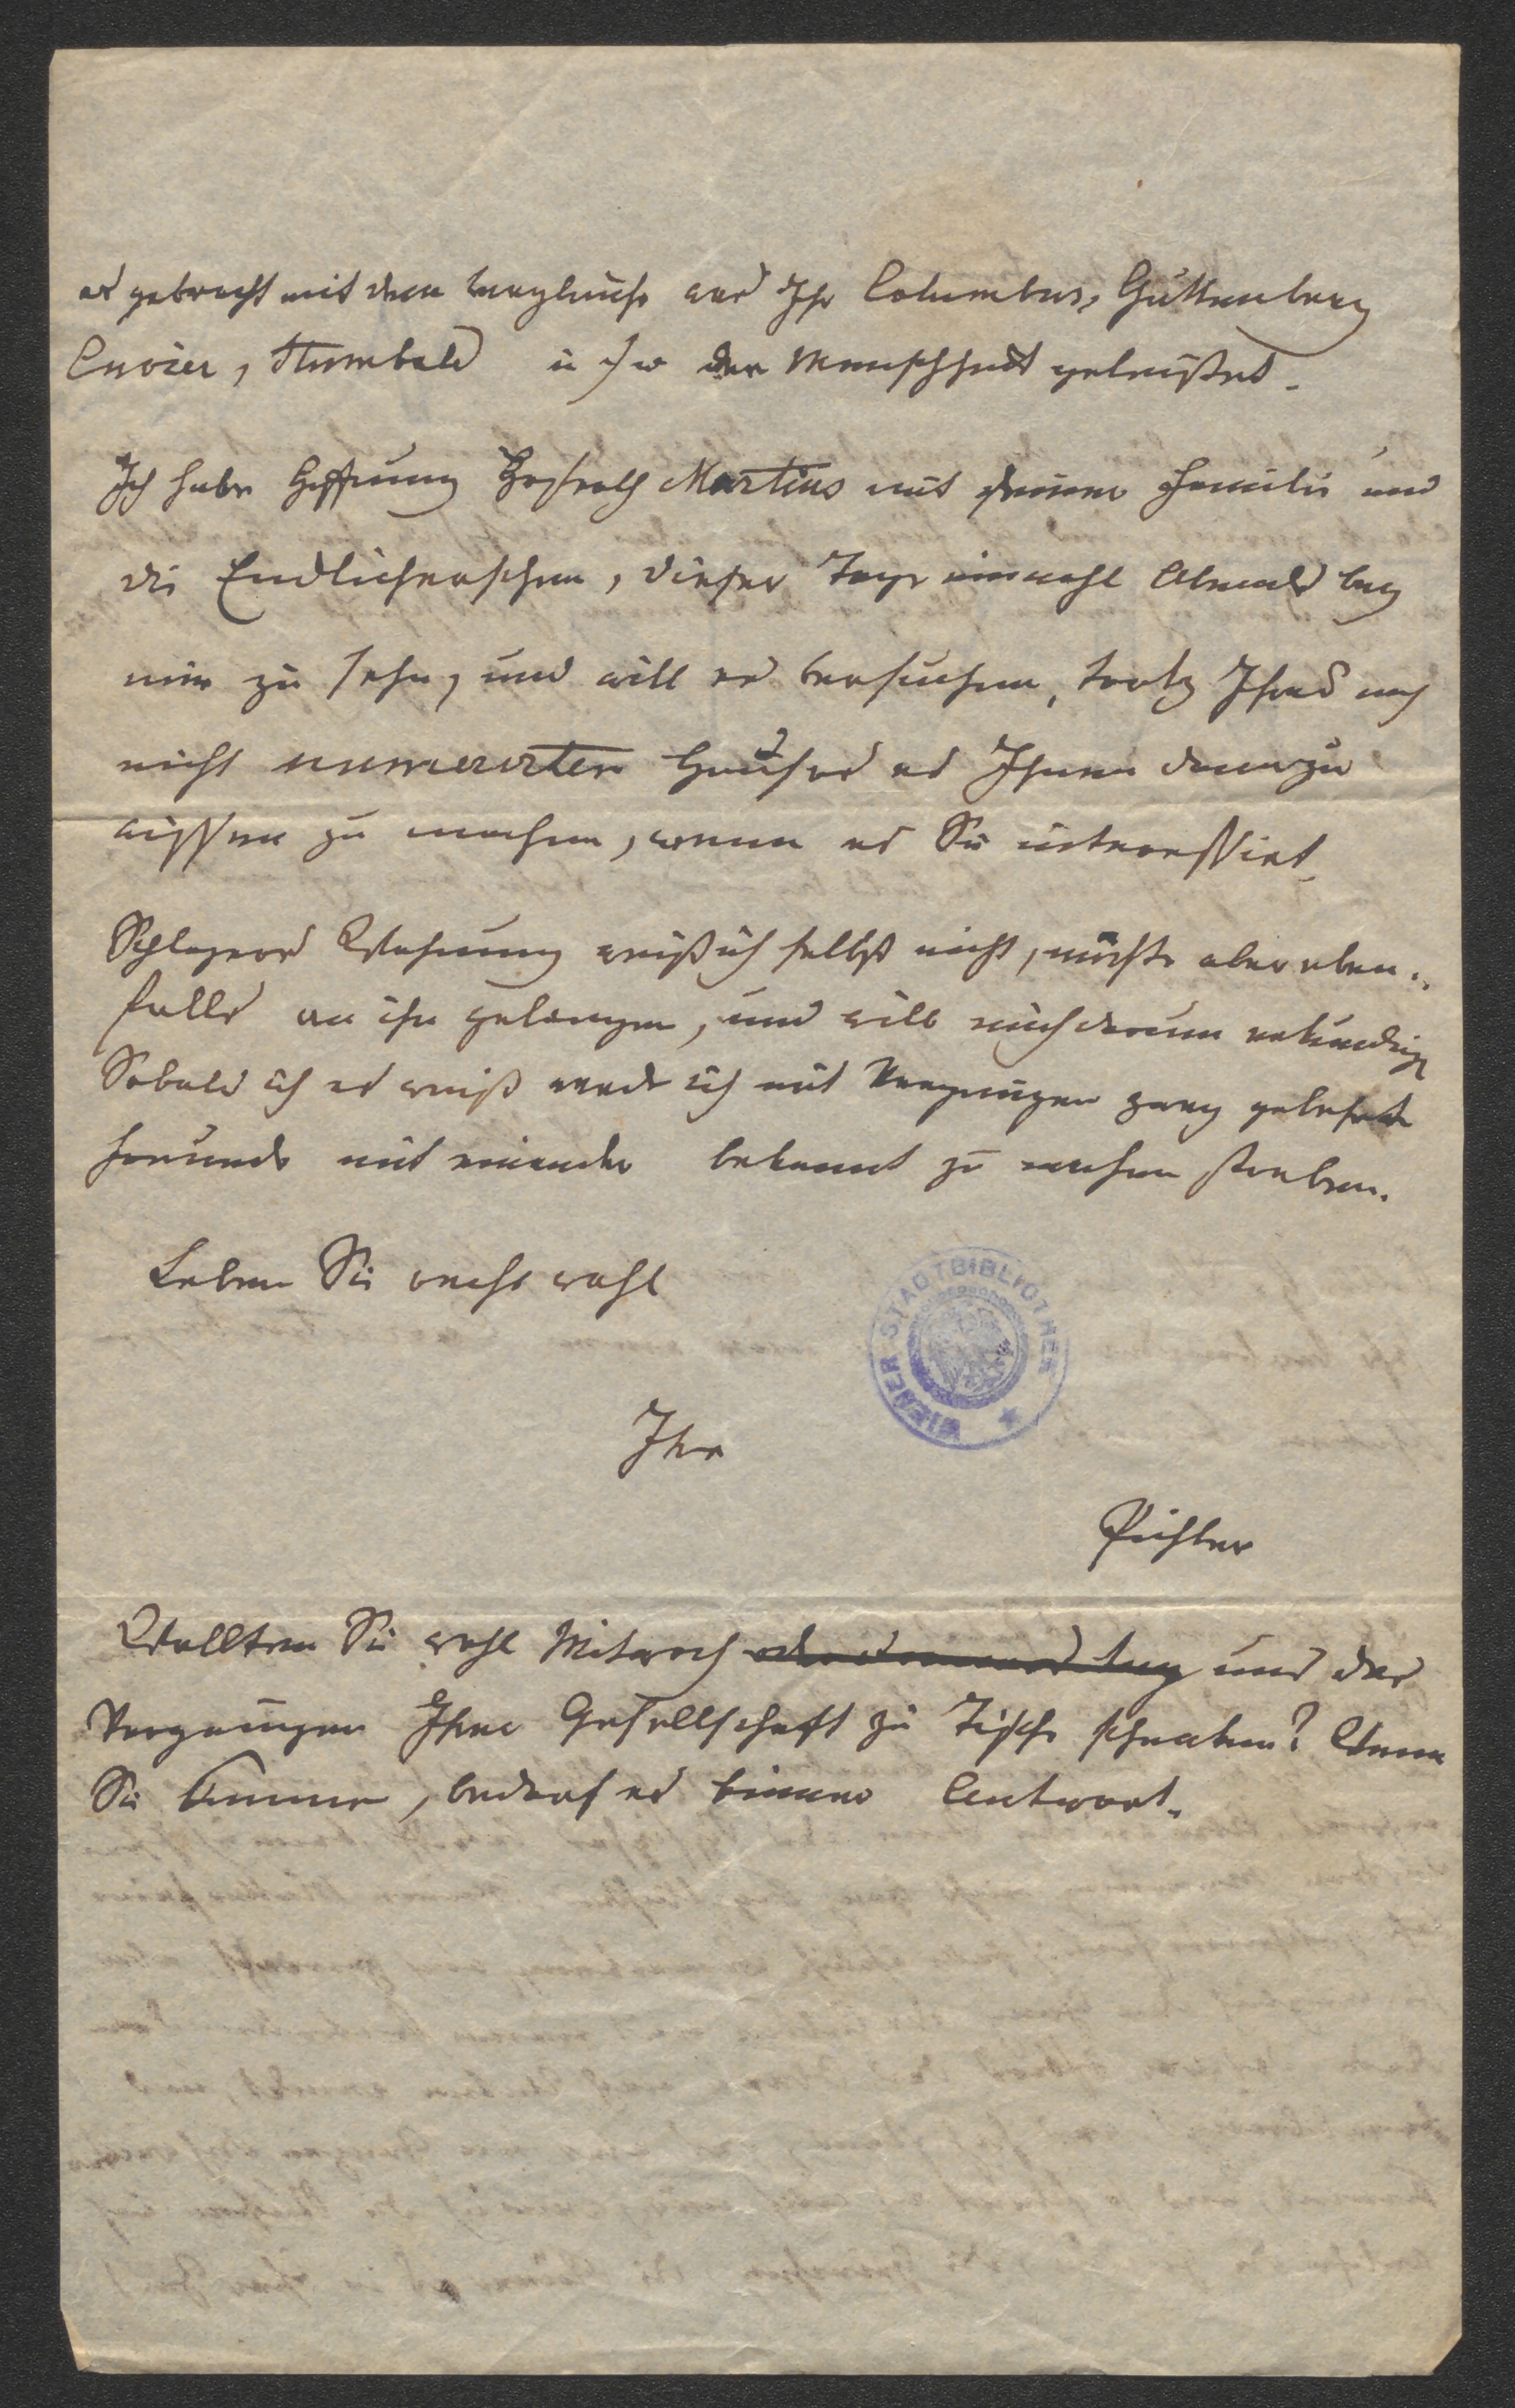 es gebracht mit dem vergleiche was Ihr Columbus, Guttenberg
Cuvier, Humbold u s w der Menschheit geleistet.
Ich habe Hoffnung Hofrath Martius mit seiner Familie und
die Endlicherschen, dieser Tage einmahl Abends bey
mir zu sehn, und will es versuchen, trotz Ihres noch
nicht numerirten Hauses es Ihnen dann zu
wissen zu machen, wenn es Sie interessirt.
Wohnung weiß ich selbst nicht, möchte aber eben-
falls an ihn gelangen, und will mich darum erkundigen
Sobald ich es weiß werde ich mit Vergnügen zwey gelehrte
Freunde mit einander bekannt zu machen streben.
Leben Sie recht wohl
WIENER STADTBIBLIOTHEK
Ihre
Pichler
Wollten Sie wohl Mitwoch oder Donnerstag uns das
Vergnügen Ihrer Gesellschaft zu Tische schenken? Wenn
Sie kommen, bedarf es keiner Antwort.